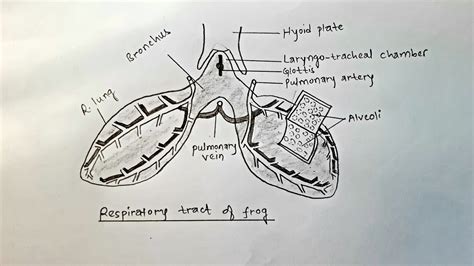 Hyoid plate
Bronchus
Laryngo-tracheal chamber
Glottis
Pulmonary artery
R. lung
Alveoli
pulmonary
vein
Respiratory tract of frog